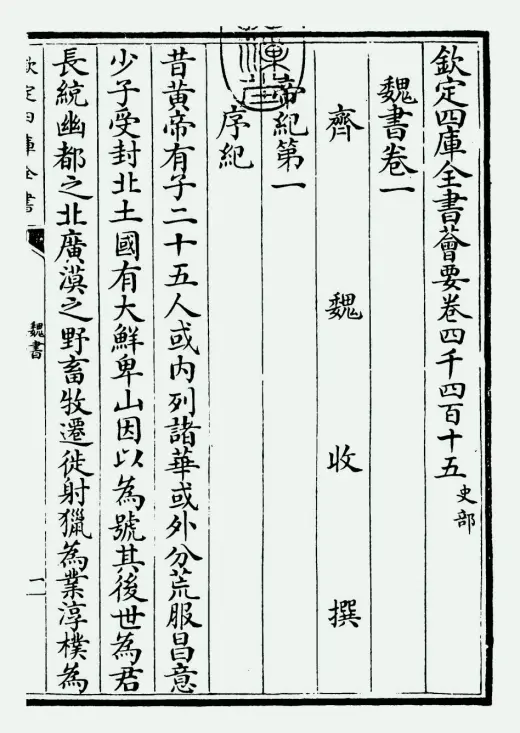 欽定四庫全書薈要卷四千四百十五 史部
魏書卷一
齊 魏 收 撰
帝紀第一
序紀
昔黃帝有子二十五人或内列諸華或外分荒服昌意
少子受封北土國有大鮮卑山因以為號其後世為君
長統幽都之北廣漠之野畜牧遷徙射獵為業淳樸為
欽定四庫全書
魏書
一